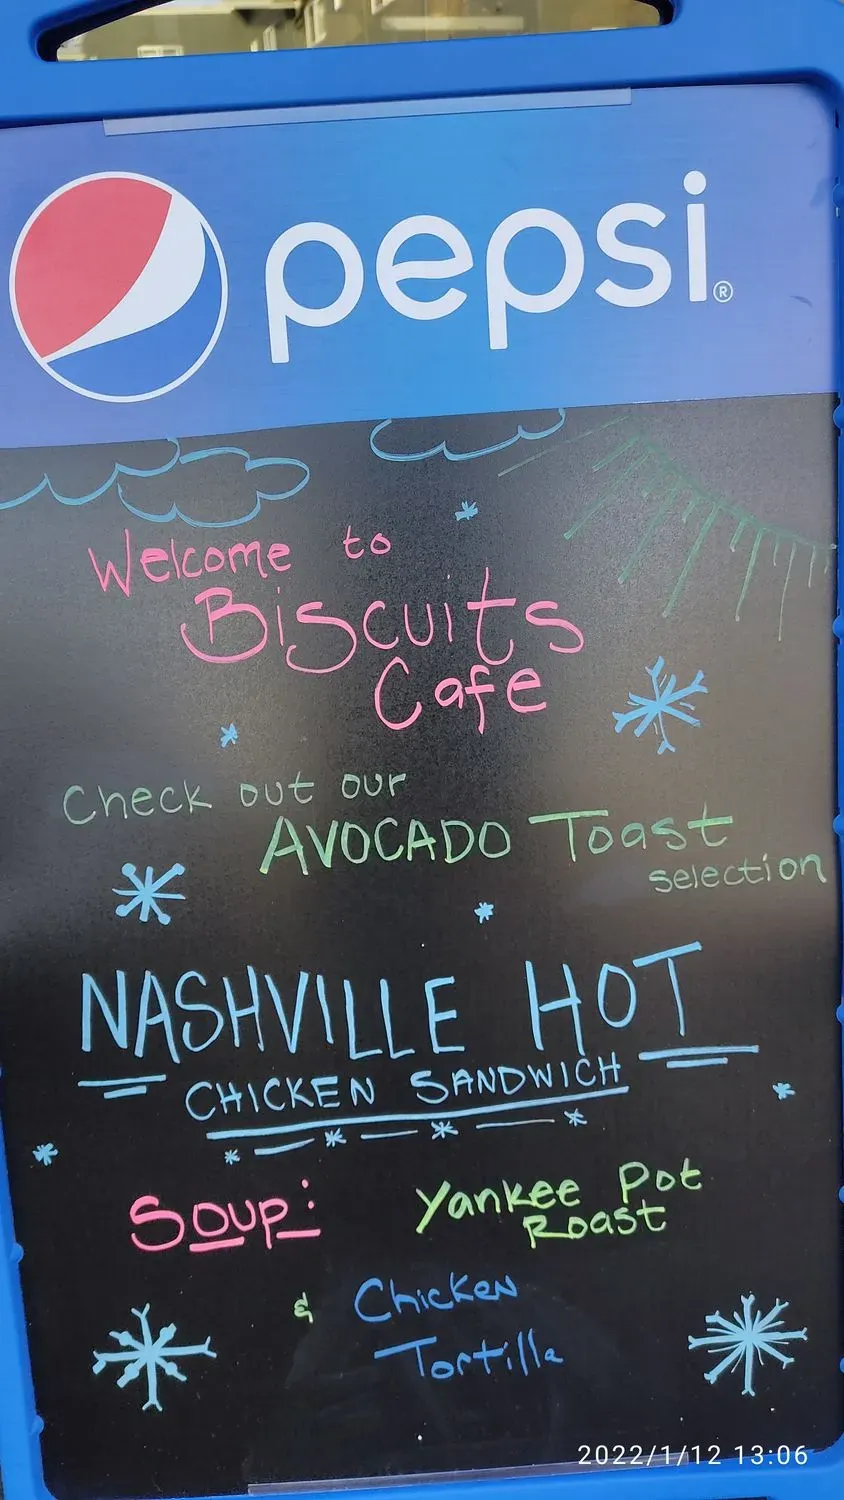 pepsi®
Welcome to
Biscuits
Cafe
Check out our
AVOCADO Toast
selection
NASHVILLE HOT
CHICKEN SANDWICH
Soup: Yankee Pot
Roast
& Chicken
Tortilla
2022/1/12 13:06